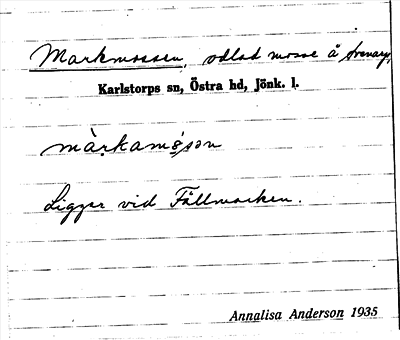 Markmossen, odlad mosse å
Karlstorps sn, Östra hd, Jönk. l.
màrkamósən
Ligger vid Fällmarken.
Annalisa Anderson 1935